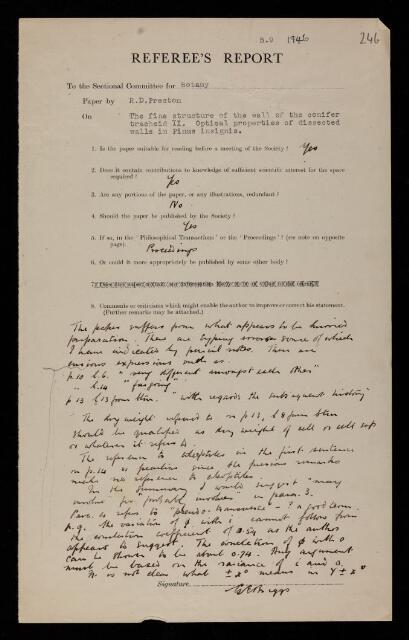 8.9 1946
246
REFEREE'S REPORT
To the Sectional Committee for Botany
Paper by R.D.Preston
On The fine structure of the wall of the conifer
tracheid II. Optical properties of dissected
walls in Pinus insignis.
1. Is the paper suitable for reading before a meeting of the Society? Yes
2. Does it contain contributions to knowledge of sufficient scientific interest for the space
required?
Yes
3. Are any portions of the paper, or any illustrations, redundant?
No.
4. Should the paper be published by the Society?
Yes
5. If so, in the 'Philosophical Transactions' or the 'Proceedings'? (see note on opposite
page).
Proceedings
6. Or could it more appropriately be published by some other body?
8. Comments or criticisms which might enable the author to improve or correct his statement.
(Further remarks may be attached.)
The paper suffers from what appears to be hurried
preparation. There are typing errors some of which
I have indicated by pencil notes. There are
curious expressions such as
p.10 l.6. "very different amongst each other"
" l.14
p 13 l 13 from bottom. "with regards the subsequent history"
The dry weight referred to on p 13, l 8 from bottom
should be qualified as dry weight of cell or cell sap
or whatever it refers to.
The reference to in the first sentence
on p.14 is peculiar since the previous remarks
make no reference to
In the summary I would suggest "may
involve" for "probably involves" in para. 3.
Para. 2 refers to "pseudo-transverse" - ? a good term.
p. 9. the variation of φ with i cannot follow from
the correlation coefficient of 0.54 as the author
appears to suggest. The correlation of φ with θ
can be shown to be about 0.74. Any argument
must be based on the variance of i and θ.
It is not clear what means in
Signature. G E Briggs